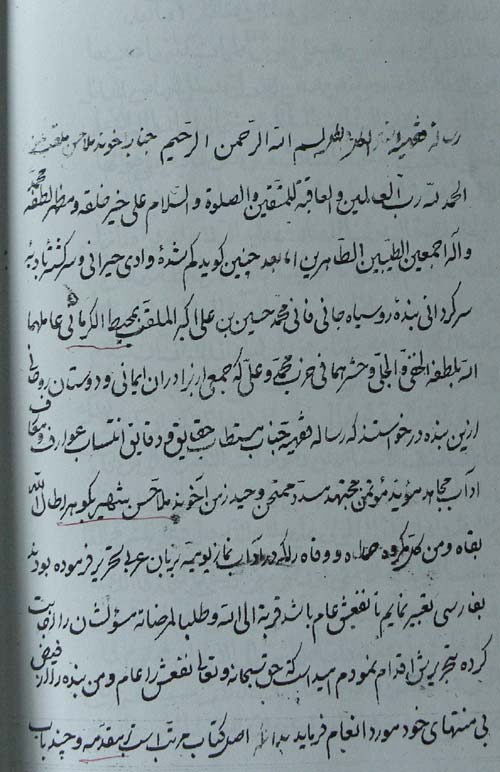 رساله فقهیه بسم الله الرحمن الرحیم جناب اخوند ملا حسن ملقب
الحمد لله رب العالمین والعاقبة للمتقین والصلوة والسلام علی خیر خلقه و مظهر لطفه محمد
وآله اجمعین الطیبین الطاهرین اما بعد چنین کوید کم شدهٔ وادی حیرانی و سرکشتهٔ بادیهٔ
سرکردانی بندهٔ روسیاه جانی فانی محمد حسین بن علی اکبر الملقب بمحیط الکرمانی عاملهما
الله بلطفه الخفی و الجلی و حشرهما فی حزب محمد و علی که جمعی از برادران ایمانی و دوستان روحانی
ازین بنده درخواستند که رساله فقهیه جناب مستطاب حقایق و دقایق انتساب عوارف و معارف
اداب مجاهد مؤید مؤتمن مجتهد مسدد ممتحن وحید زمن اخوند ملا حسن شهیر بکوهر اطال الله
بقاه و من کل مکروه وقاه را که در آداب نماز یومیه بزبان عربی تحریر فرموده بودند
بفارسی تعبیر نمایم تا نفعش عام باشد قربة الی الله و طلبا لمرضاته مسؤلشان را اجابت
کرده بتحریرش اقدام نمودم امید است که حق سبحانه و تعالی نفعش را عام و من بنده را از فیض
بی منتهای خود مورد انعام فرماید اصل کتاب مرتب است بمقدمه و چند باب